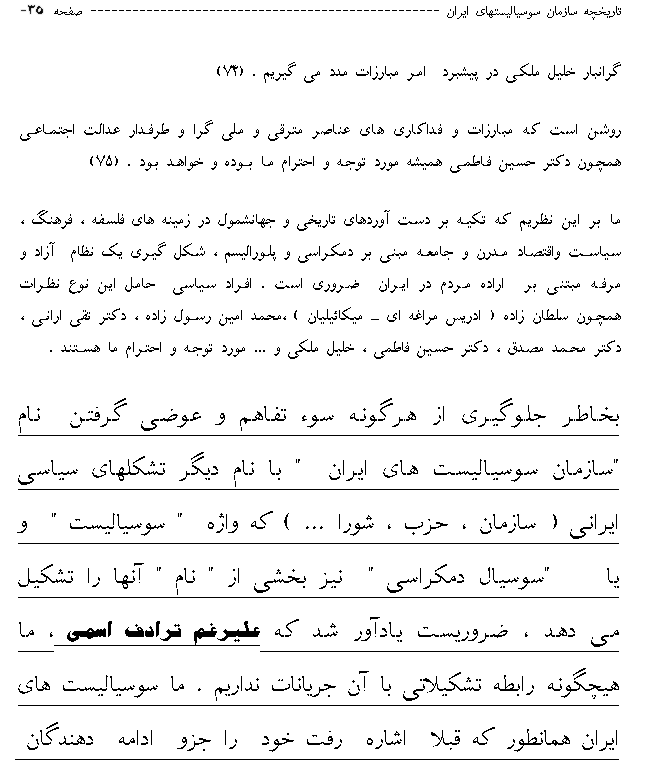 تاریخچه سازمان سوسیالیستهای ایران -------------------------------------------------- صفحه ۳۵-
گرانبار خلیل ملکی در پیشبرد امر مبارزات مدد می گیریم . (۷۴)
روشن است که مبارزات و فداکاری های عناصر مترقی و ملی گرا و طرفدار عدالت اجتماعی
همچون دکتر حسین فاطمی همیشه مورد توجه و احترام ما بوده و خواهد بود . (۷۵)
ما بر این نظریم که تکیه بر دست آوردهای تاریخی و جهانشمول در زمینه های فلسفه ، فرهنگ ،
سیاست واقتصاد مدرن و جامعه مبنی بر دمکراسی و پلورالیسم ، شکل گیری یک نظام آزاد و
مرفه مبتنی بر اراده مردم در ایران ضروری است . افراد سیاسی حامل این نوع نظرات
همچون سلطان زاده ( ادریس مراغه ای _ میکائیلیان ) ،محمد امین رسول زاده ، دکتر تقی ارانی ،
دکتر محمد مصدق ، دکتر حسین فاطمی ، خلیل ملکی و ... مورد توجه و احترام ما هستند .
بخاطر جلوگیری از هرگونه سوء تفاهم و عوضی گرفتن نام
"سازمان سوسیالیست های ایران " با نام دیگر تشکلهای سیاسی
ایرانی ( سازمان ، حزب ، شورا ... ) که واژه " سوسیالیست " و
یا "سوسیال دمکراسی " نیز بخشی از " نام " آنها را تشکیل
می دهد ، ضروریست یادآور شد که علیرغم ترادف اسمی ، ما
هیچگونه رابطه تشکیلاتی با آن جریانات نداریم . ما سوسیالیست های
ایران همانطور که قبلا اشاره رفت خود را جزو ادامه دهندگان